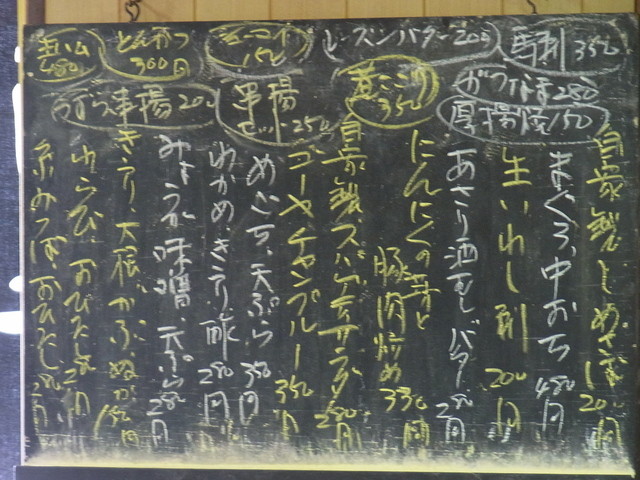 生ハム 480
とんかつ 300円
レーズンバター 200
馬刺 350
煮こごり 350
うずら串揚 200
串揚セット 250
厚揚焼 150
自家製しめさば 20 円
まぐろ中おち 480円
生いわし刺 200円
あさり酒むし、バター 280円
にんにくの芽と豚肉炒め 330円
自家製スパゲティサラダ 280円
ゴーヤチャンプルー 350円
めごち天ぷら 350円
わかめ、きうり酢 280円
みょうが味噌、天ぷら 280円
きうり、大根、かぶ、ぬか 180円
わらび、おひたし 280円
糸みつばおひたし 280円